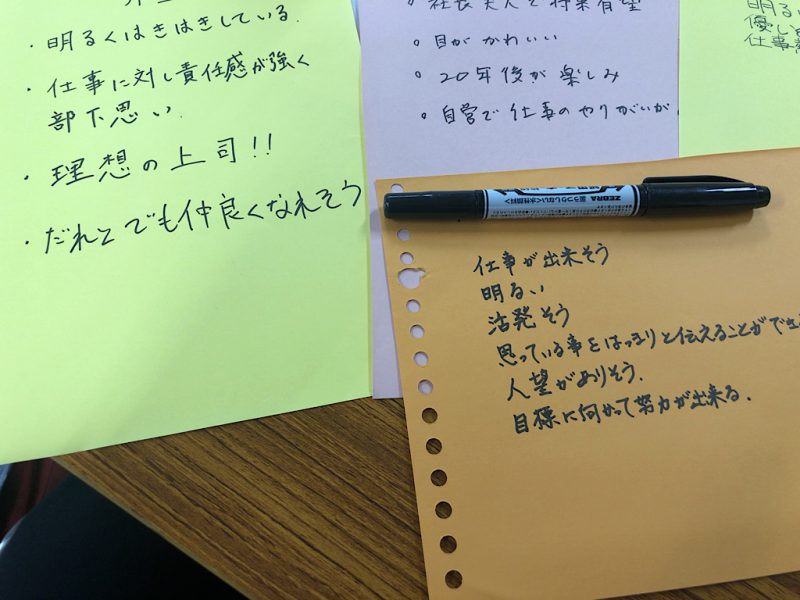 ・明るくはきはきしている.
・仕事に対し責任感が強く
部下思い.
・理想の上司!!
・だれとでも仲良くなれそう
○社長夫人で将来有望
○目がかわいい
○20年後が楽しみ
○自営で仕事のやりがいが
明る
優し
仕事
ZEBRA
仕事が出来そう
明るい
活発そう
思っている事をはっきりと伝えることができ
人望がありそう.
目標に向かって努力が出来る.